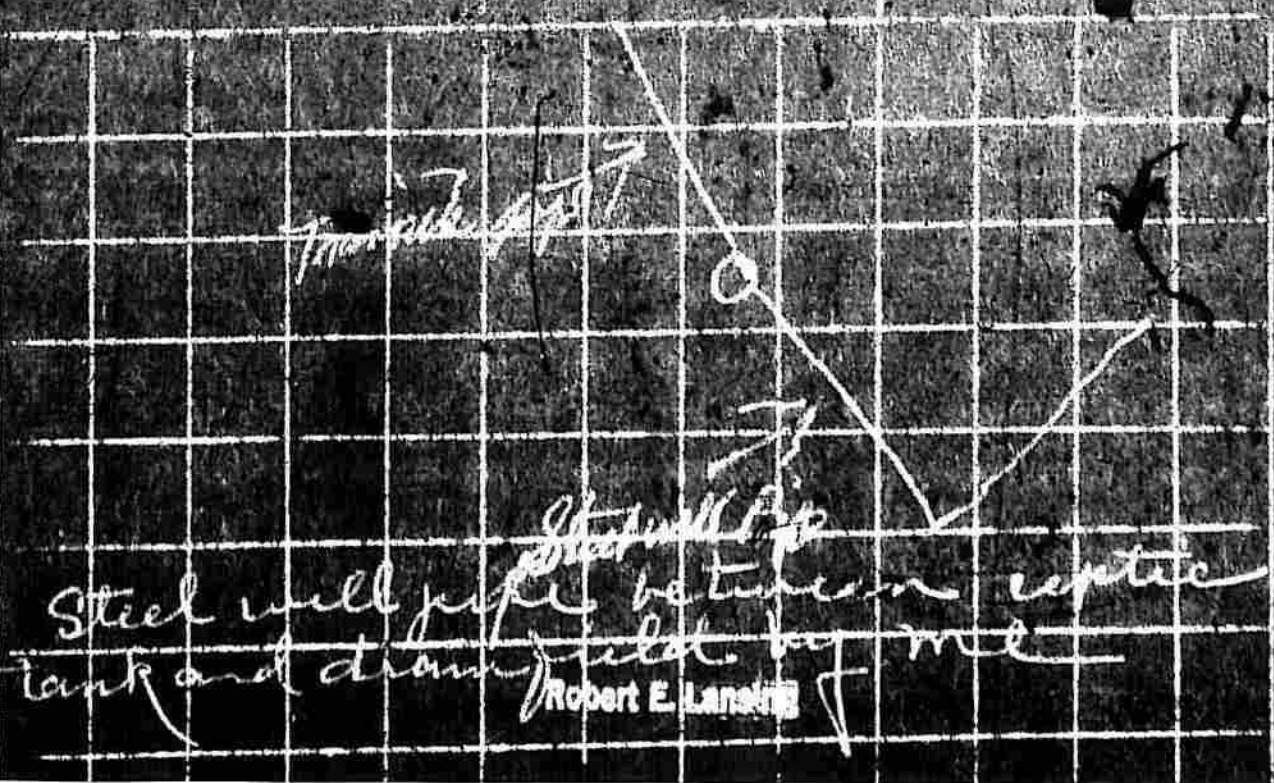 Steel well Pipe
Steel well pipe between septic
tank and drain field by me
Robert E. Lansing